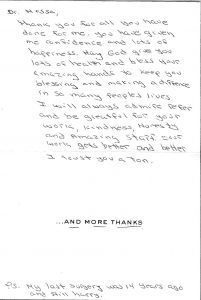 Dr. Massa,
Thank you for all you have
done for me. You have given
me confidence and lots of
happiness. May God give you
lots of health and bless your
amazing hands to keep you
blessing and making a difference
in so many peoples lives.
I will always admire
and be greatful for your
work, kindness, honesty
and Amazing Staff. your
work gets better and better
I trust you a ton.
...AND MORE THANKS
P.s. My last surgery was 14 years ago
and still happy.